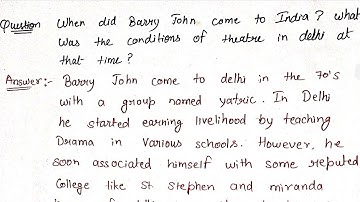 Question When did Barry John come to India? What
was the conditions of theatre in delhi at
that time?
Answer:- Barry John come to delhi in the 70's
with a group named yatric. In Delhi
he started earning livelihood by teaching
Drama in Various schools. However, he
soon associated himself with some reputed
College like St. Stephen and miranda